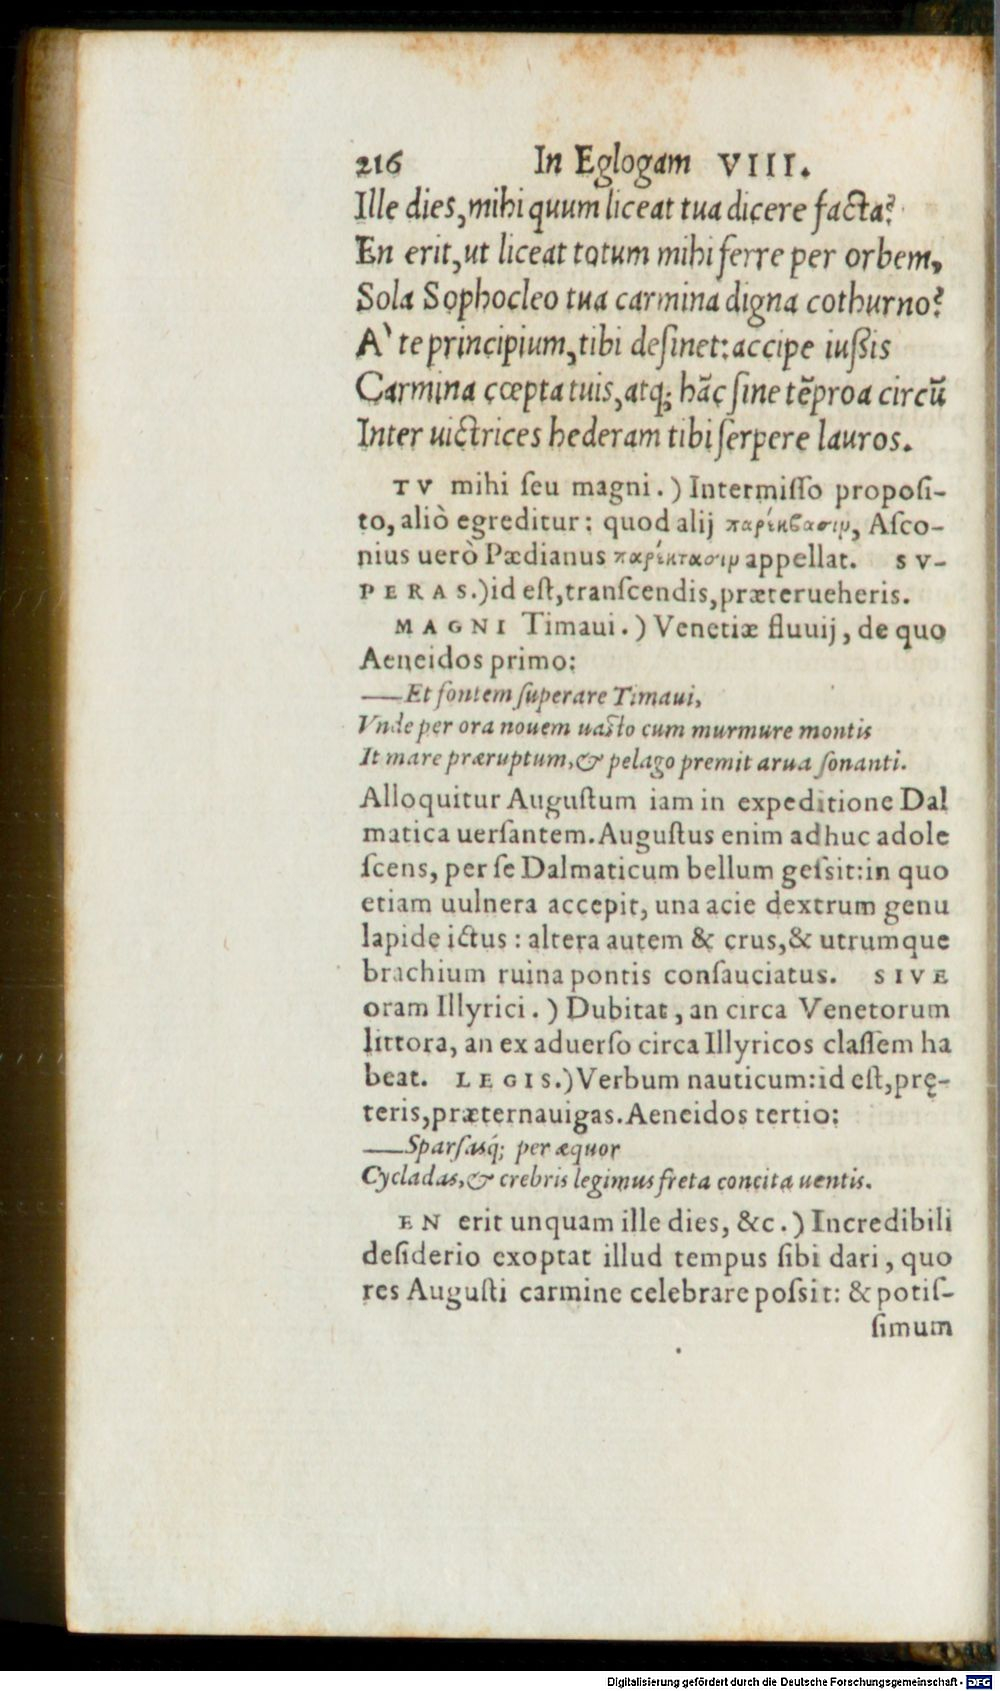 216 In Eglogam VIII.
Ille dies, mihi quum liceat tua dicere facta?
En erit, ut liceat totum mihi ferre per orbem,
Sola Sophocleo tua carmina digna cothurno?
A` te principium, tibi desinet: accipe iußis
Carmina cœpta tuis, atq; hãc sine tẽpora circũ
Inter uictrices hederam tibi serpere lauros.
TV mihi seu magni.) Intermisso proposi-
to, aliò egreditur: quod alij παρέκβασιμ, Asco-
nius uerò Pædianus παρέκτασιμ appellat. SV-
PERAS.) id est, transcendis, præterueheris.
MAGNI Timaui.) Venetiæ fluuij, de quo
Aeneidos primo:
—Et fontem superare Timaui,
Vnde per ora nouem uasto cum murmure montis
It mare præruptum, & pelago premit arua sonanti.
Alloquitur Augustum iam in expeditione Dal
matica uersantem. Augustus enim adhuc adole
scens, per se Dalmaticum bellum gessit: in quo
etiam uulnera accepit, una acie dextrum genu
lapide ictus: altera autem & crus, & utrumque
brachium ruina pontis consauciatus. SIVE
oram Illyrici.) Dubitat, an circa Venetorum
littora, an ex aduerso circa Illyricos classem ha
beat. LEGIS.) Verbum nauticum: id est, prę-
teris, præternauigas. Aeneidos tertio:
—Sparsasq́; per æquor
Cycladas, & crebris legimus freta concita uentis.
EN erit unquam ille dies, &c.) Incredibili
desiderio exoptat illud tempus sibi dari, quo
res Augusti carmine celebrare possit: & potis-
simum
Digitalisierung gefördert durch die Deutsche Forschungsgemeinschaft - DFG